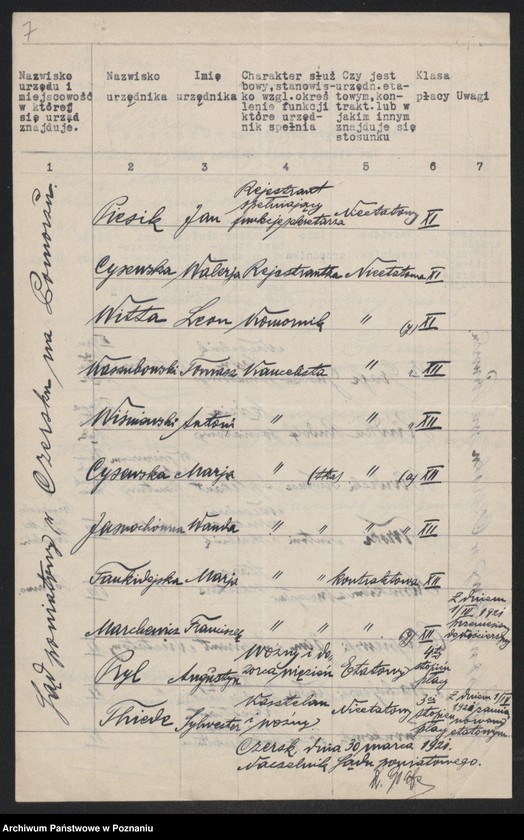 7
Nazwisko urzędu i miejscowość w której się urząd znajduje.
Nazwisko urzędnika
Imię urzędnika
Charakter służbowy, stanowisko wzgl. określenie funkcji które urzędnik spełnia
Czy jest urzędn. etatowym, kontrakt. lub w jakim innym znajduje się stosunku
Klasa płacy
Uwagi
1 2 3 4 5 6 7
Sąd powiatowy w Czersku na Pomorzu.
Piesik Jan Rejestrant spełniający funkcje sekretarza Nieetatowy XI
Cysewska Walerja Rejestrantka Nieetatowa XI
Witta Leon Komornik " (y) XI
Tomasz Kancelista " " XII
Wiśniewski Antoni " " " XII
Cysewska Marja " (tka) " (a) XII
Wanda " " " " XII
Marja " " kontraktowa XII
Marchewicz Franciszek " " " (y) XII Z dniem 1/IV 1921
Pryl Augustyn Woźny i dozorca więzień Etatowy 4ty stopień płacy
Thiede Sylwester Kasztelan i woźny Nieetatowy 3ci stopień płacy Z dniem 1/IV 1921 zamianowany etatowym
Czersk, dnia 30 marca 1921.
Naczelnik Sądu powiatowego.
Archiwum Państwowe w Poznaniu
szukajwarchiwach.gov.pl